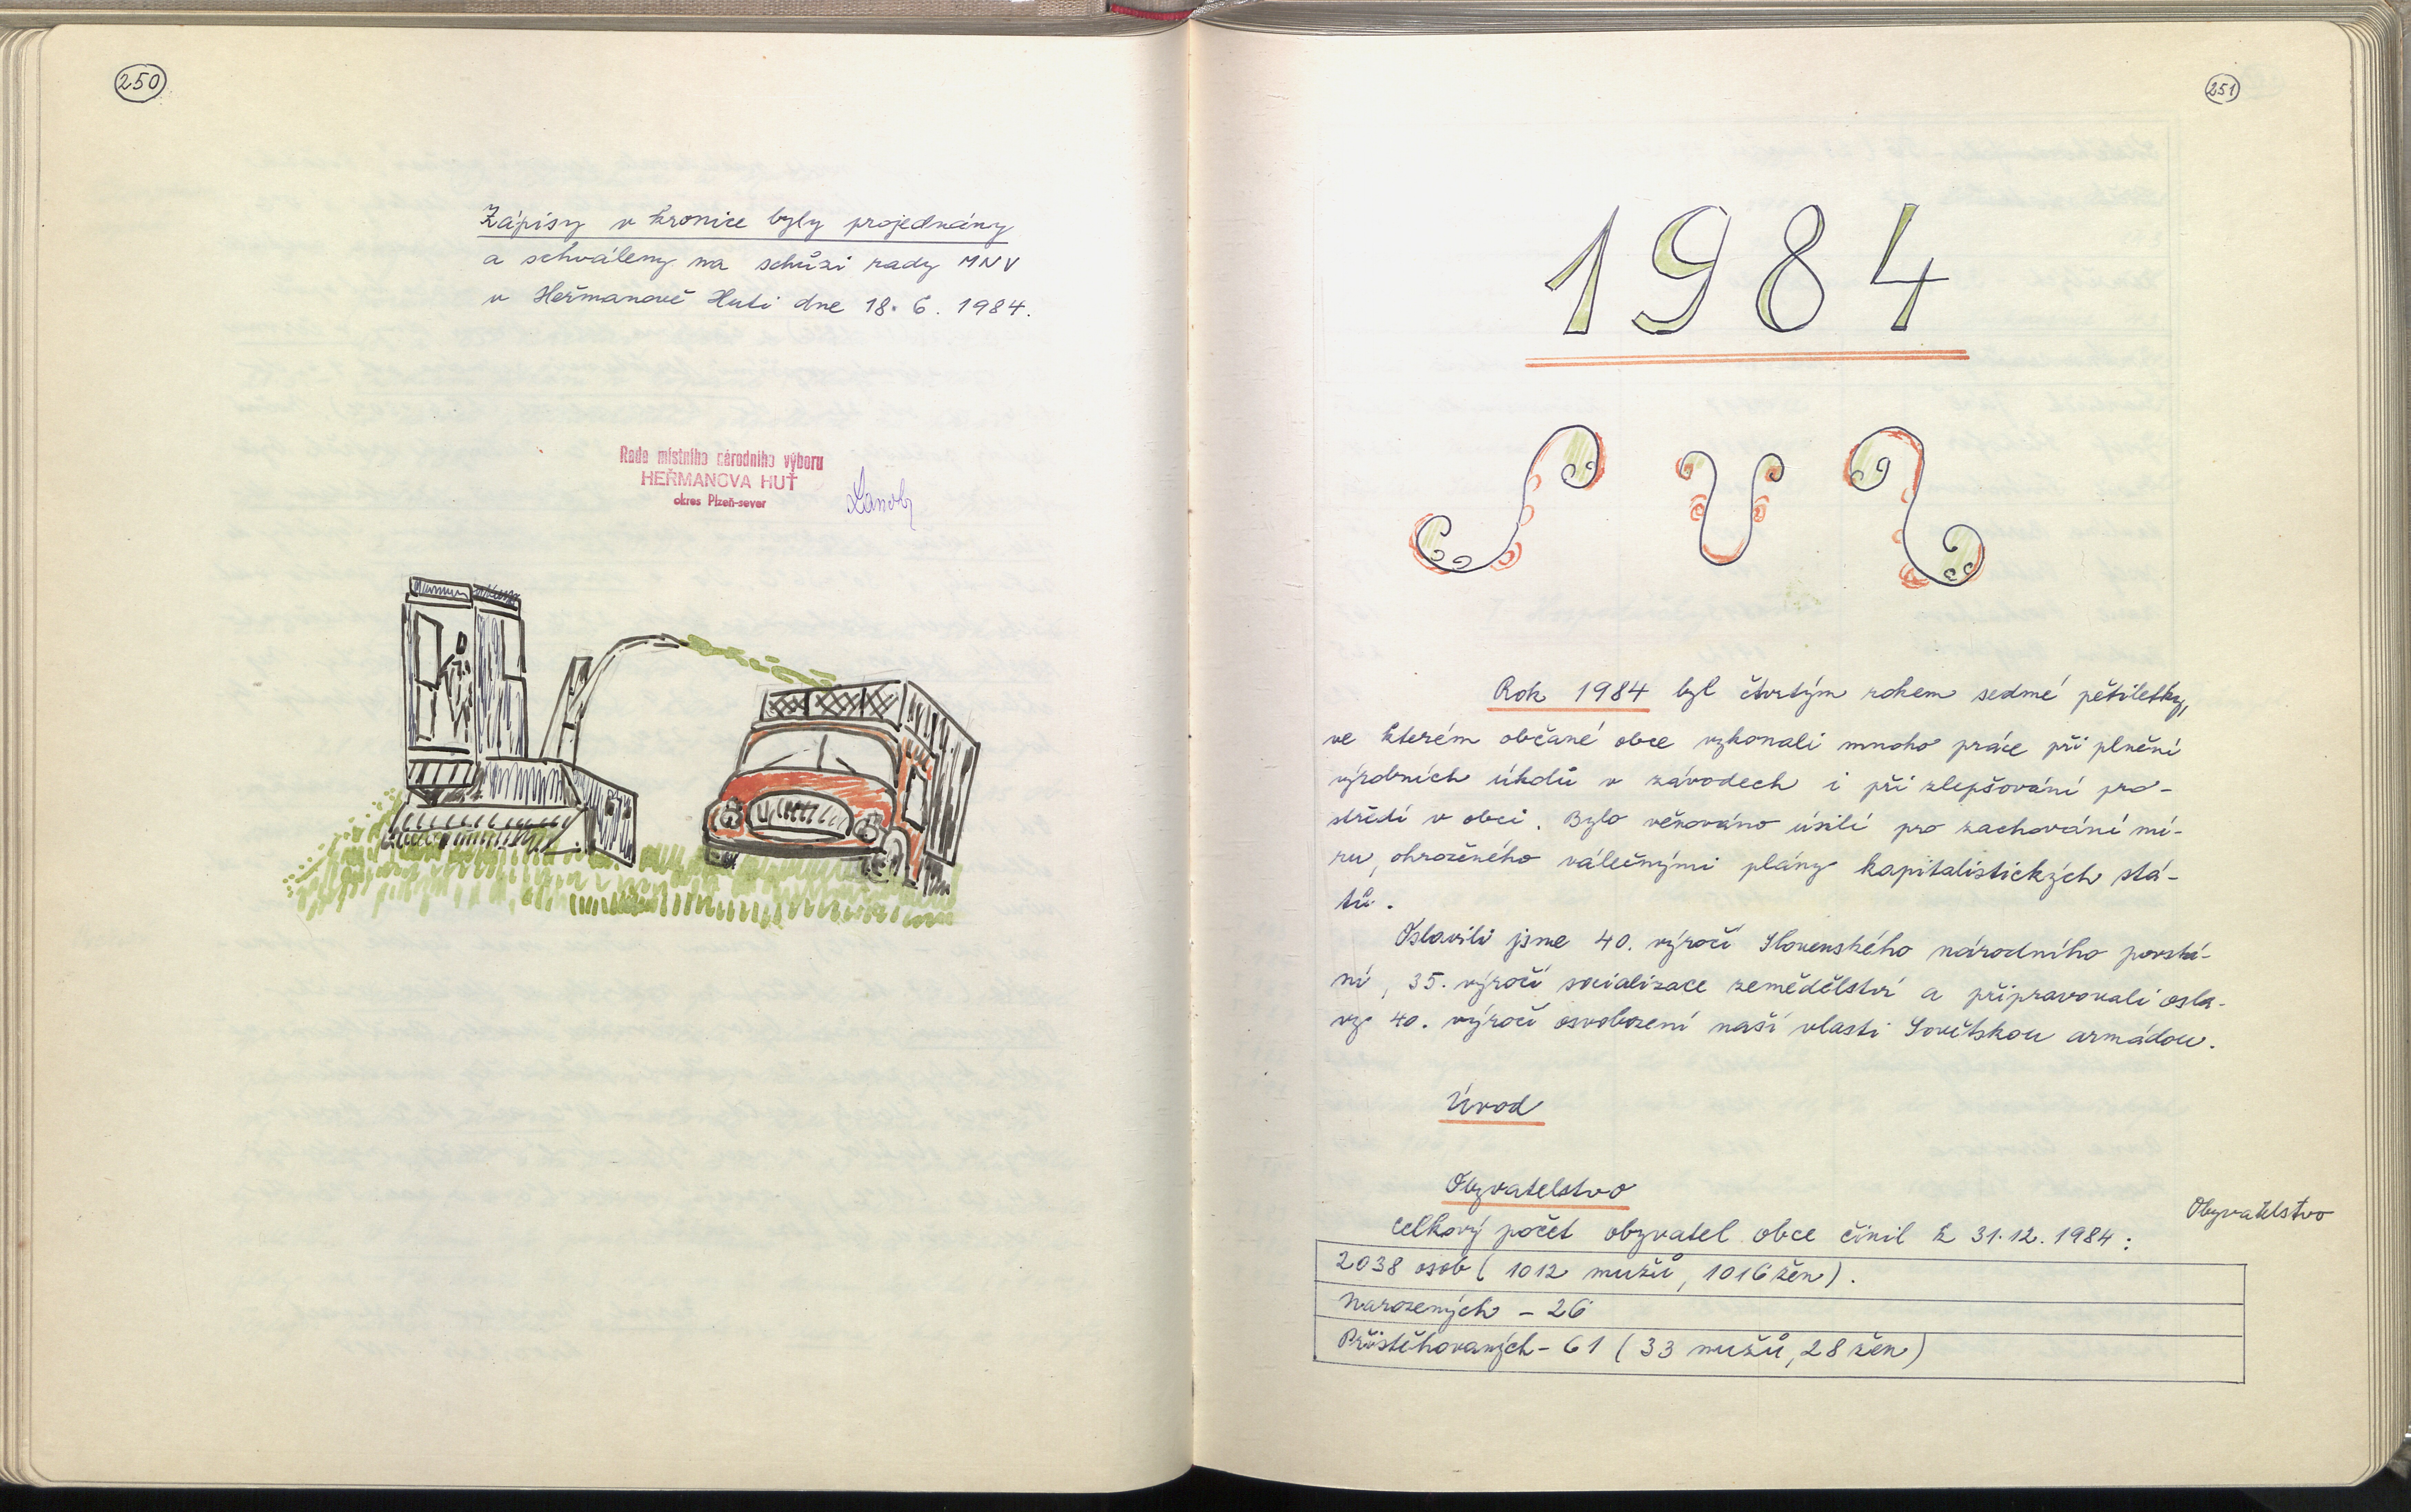 250
Zápisy v kronice byly projednány
a schváleny na schůzi rady MNV
v Heřmanově Huti dne 18. 6. 1984.
Rada místního národního výboru
HEŘMANOVA HUŤ
okres Plzeň-sever
251
1984
Rok 1984 byl čtvrtým rokem sedmé pětiletky,
ve kterém občané obce vykonali mnoho práce při plnění
výrobních úkolů v závodech i při zlepšování pro-
středí v obci. Bylo věnováno úsilí pro zachování mí-
ru, ohroženého válečnými plány kapitalistických stá-
tů.
Oslavili jsme 40. výročí Slovenského národního povstá-
ní, 35. výročí socializace zemědělství a připravovali osla-
vy 40. výročí osvobození naší vlasti Sovětskou armádou.
Úvod
Obyvatelstvo
Obyvatelstvo
Celkový počet obyvatel obce činil k 31.12. 1984:
2038 osob (1012 mužů, 1016 žen).
Narozených - 26
Přistěhovaných - 61 (33 mužů, 28 žen)